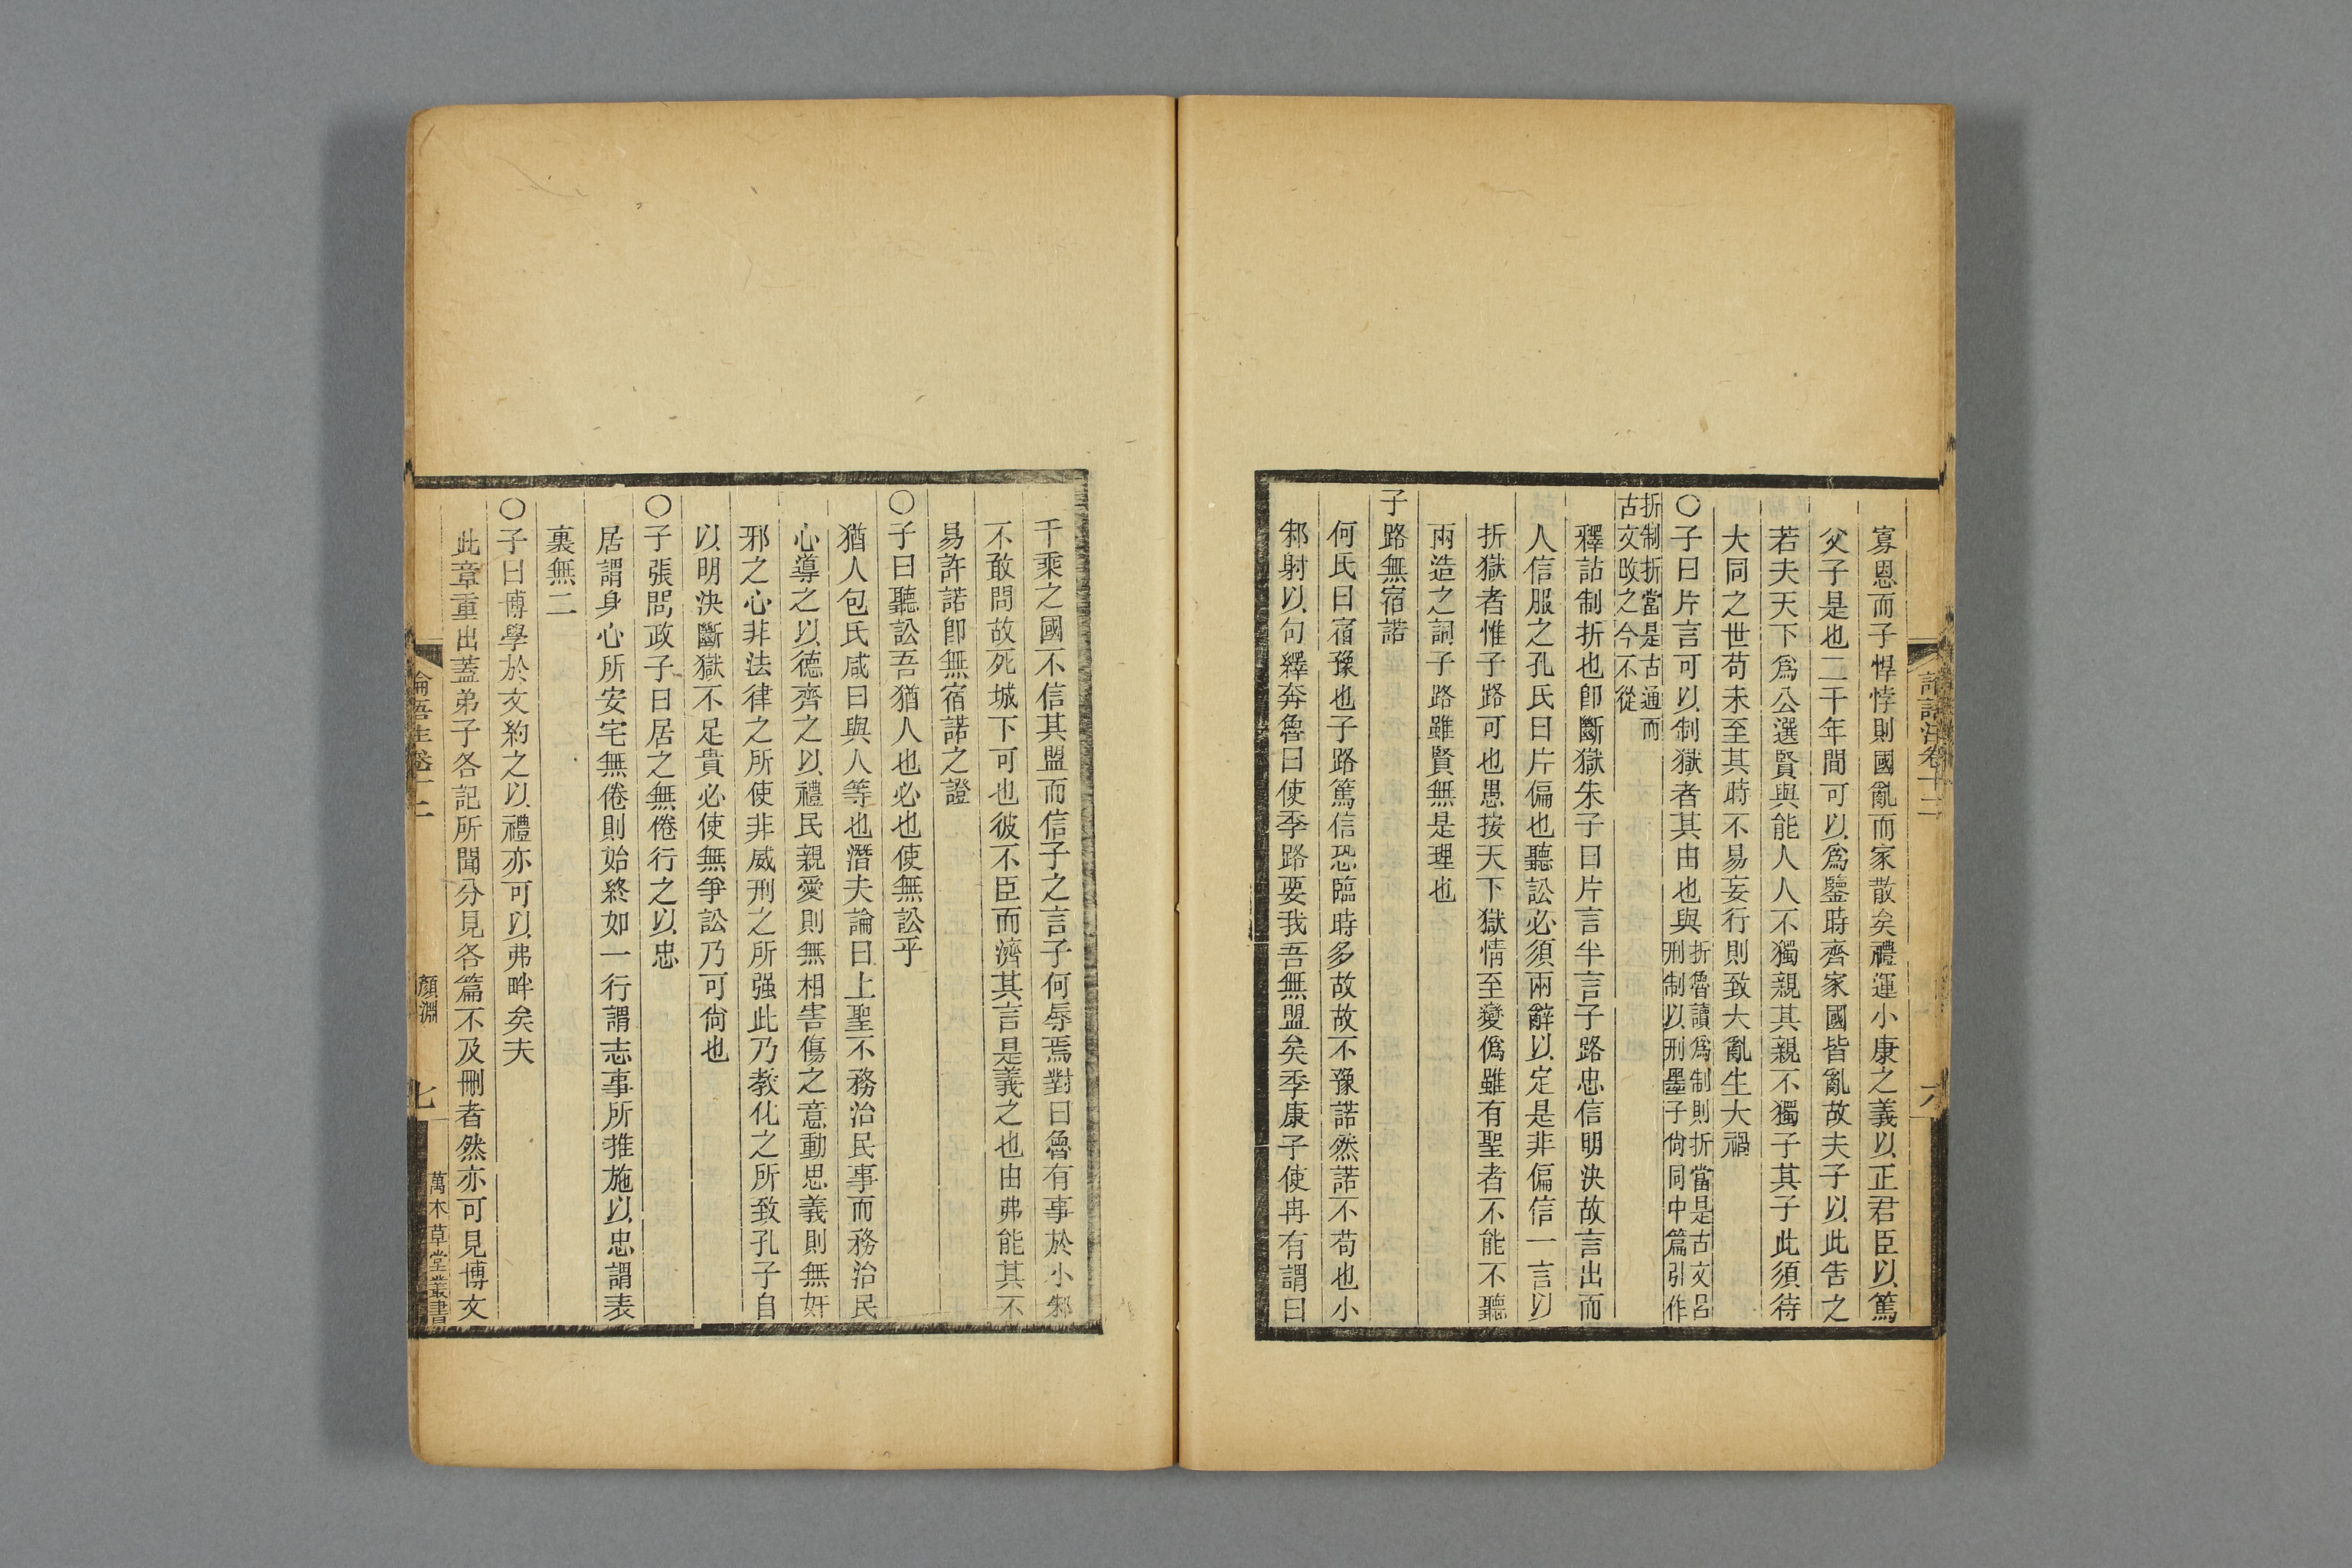 論語注卷十二
六
寡恩而子悍悖則國亂而家散矣禮運小康之義以正君臣以篤
父子是也二千年間可以爲鑒時齊家國皆亂故夫子以此告之
若夫天下爲公選賢與能人人不獨親其親不獨子其子此須待
大同之世苟未至其時不易妄行則致大亂生大禍
〇子曰片言可以制獄者其由也與折魯讀爲制則折當是古文呂
刑制以刑墨子尙同中篇引作
折制折當是古通而
古文攺之今不從
釋詁制折也卽斷獄朱子曰片言半言子路忠信明決故言出而
人信服之孔氏曰片偏也聽訟必須兩辭以定是非偏信一言以
折獄者惟子路可也愚按天下獄情至變僞雖有聖者不能不聽
兩造之詞子路雖賢無是理也
子路無宿諾
何氏曰宿豫也子路篤信恐臨時多故故不豫諾然諾不苟也小
邾射以句繹奔魯曰使季路要我吾無盟矣季康子使冉有謂曰
千乘之國不信其盟而信子之言子何辱焉對曰魯有事於小邾
不敢問故死城下可也彼不臣而濟其言是義之也由弗能其不
易許諾卽無宿諾之證
〇子曰聽訟吾猶人也必也使無訟乎
猶人包氏咸曰與人等也潛夫論曰上聖不務治民事而務治民
心導之以德齊之以禮民親愛則無相害傷之意動思義則無奸
邪之心非法律之所使非威刑之所强此乃教化之所致孔子自
以明決斷獄不足貴必使無爭訟乃可尙也
〇子張問政子曰居之無倦行之以忠
居謂身心所安宅無倦則始終如一行謂志事所推施以忠謂表
裏無二
〇子曰博學於文約之以禮亦可以弗畔矣夫
此章重出蓋弟子各記所聞分見各篇不及刪者然亦可見博文
論語注卷十二
顏淵
七
萬木草堂叢書